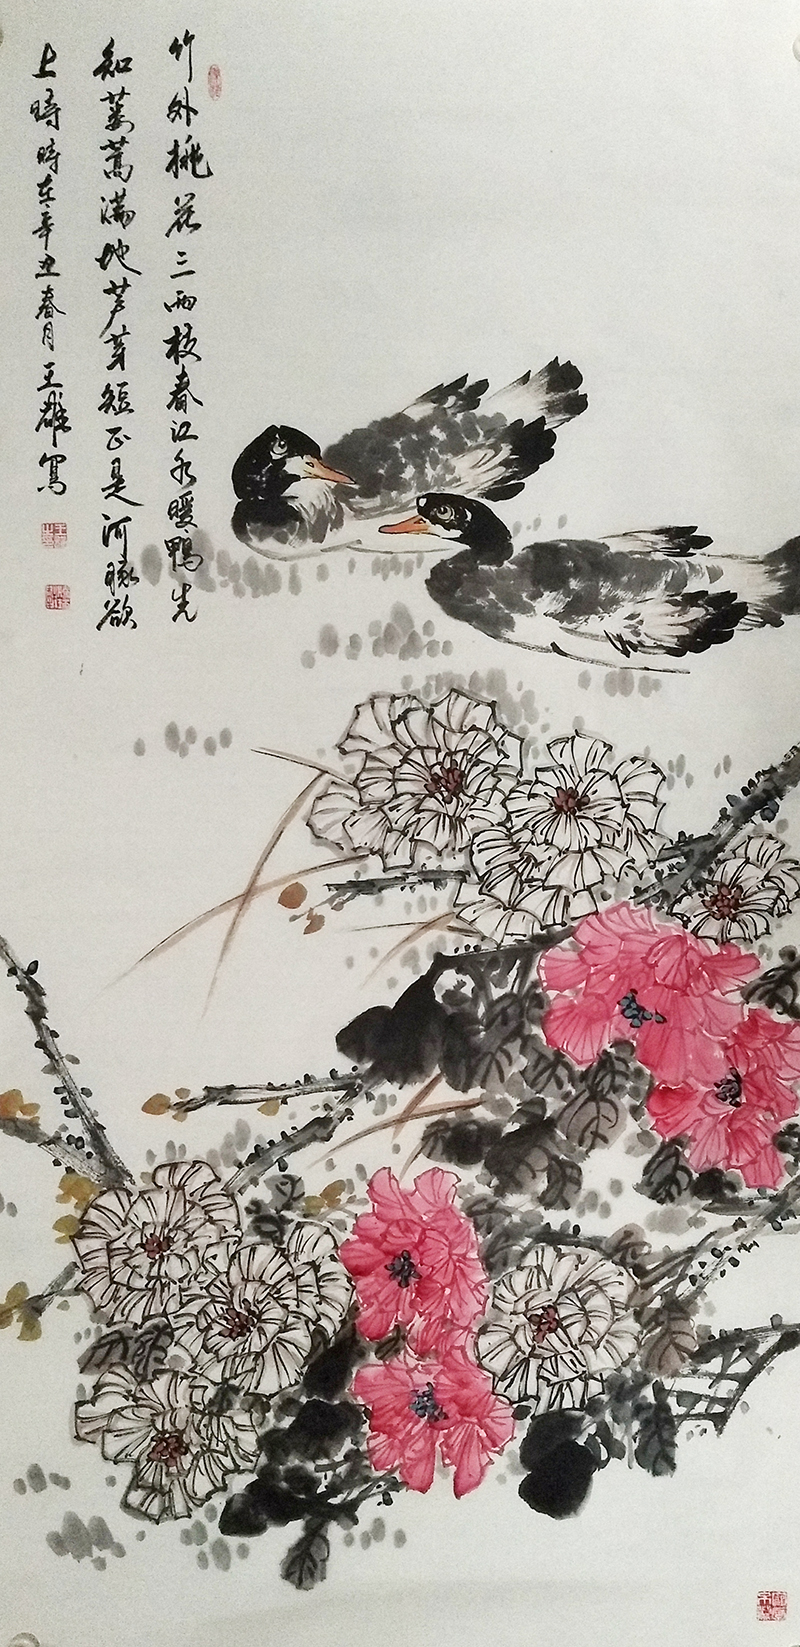 竹外桃花三两枝春江水暖鸭先
知蒌蒿满地芦芽短正是河豚欲
上時時在辛丑春月王雄写